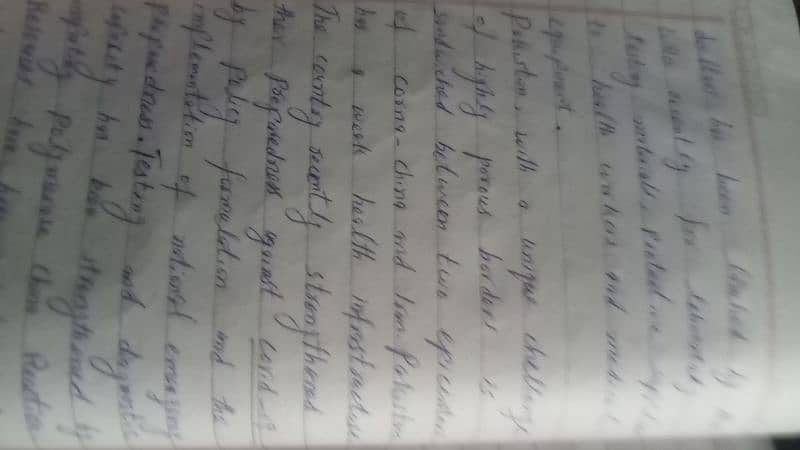 dollars has been
with recently for laboratory
testing materials, Protective
to health workers and medical
equipment.
Pakistan, with a unique challenge
of highly porous borders is
sandwiched between two epicenters
of corna-china and Iran Pakistan
has a weak health infrastructure
The country recently strengthened
their Preparedness against covid-19
by Policy formulation and the
implementation of national emergency
Preparedness. Testing and diagnostic
capacity has been strengthened by
Polymerase Chain Reaction
Resources have been